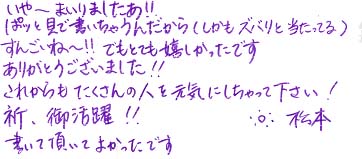 いや〜まいりましたあ!!
ぱッと見で書いちゃうんだから(しかもズバリと当たってる)
すんごいね〜!! でもとても嬉しかったです
ありがとうございました!!
これからもたくさんの人を元気にしちゃって下さい!
祈、御活躍!! 松本
書いて頂いてよかったです